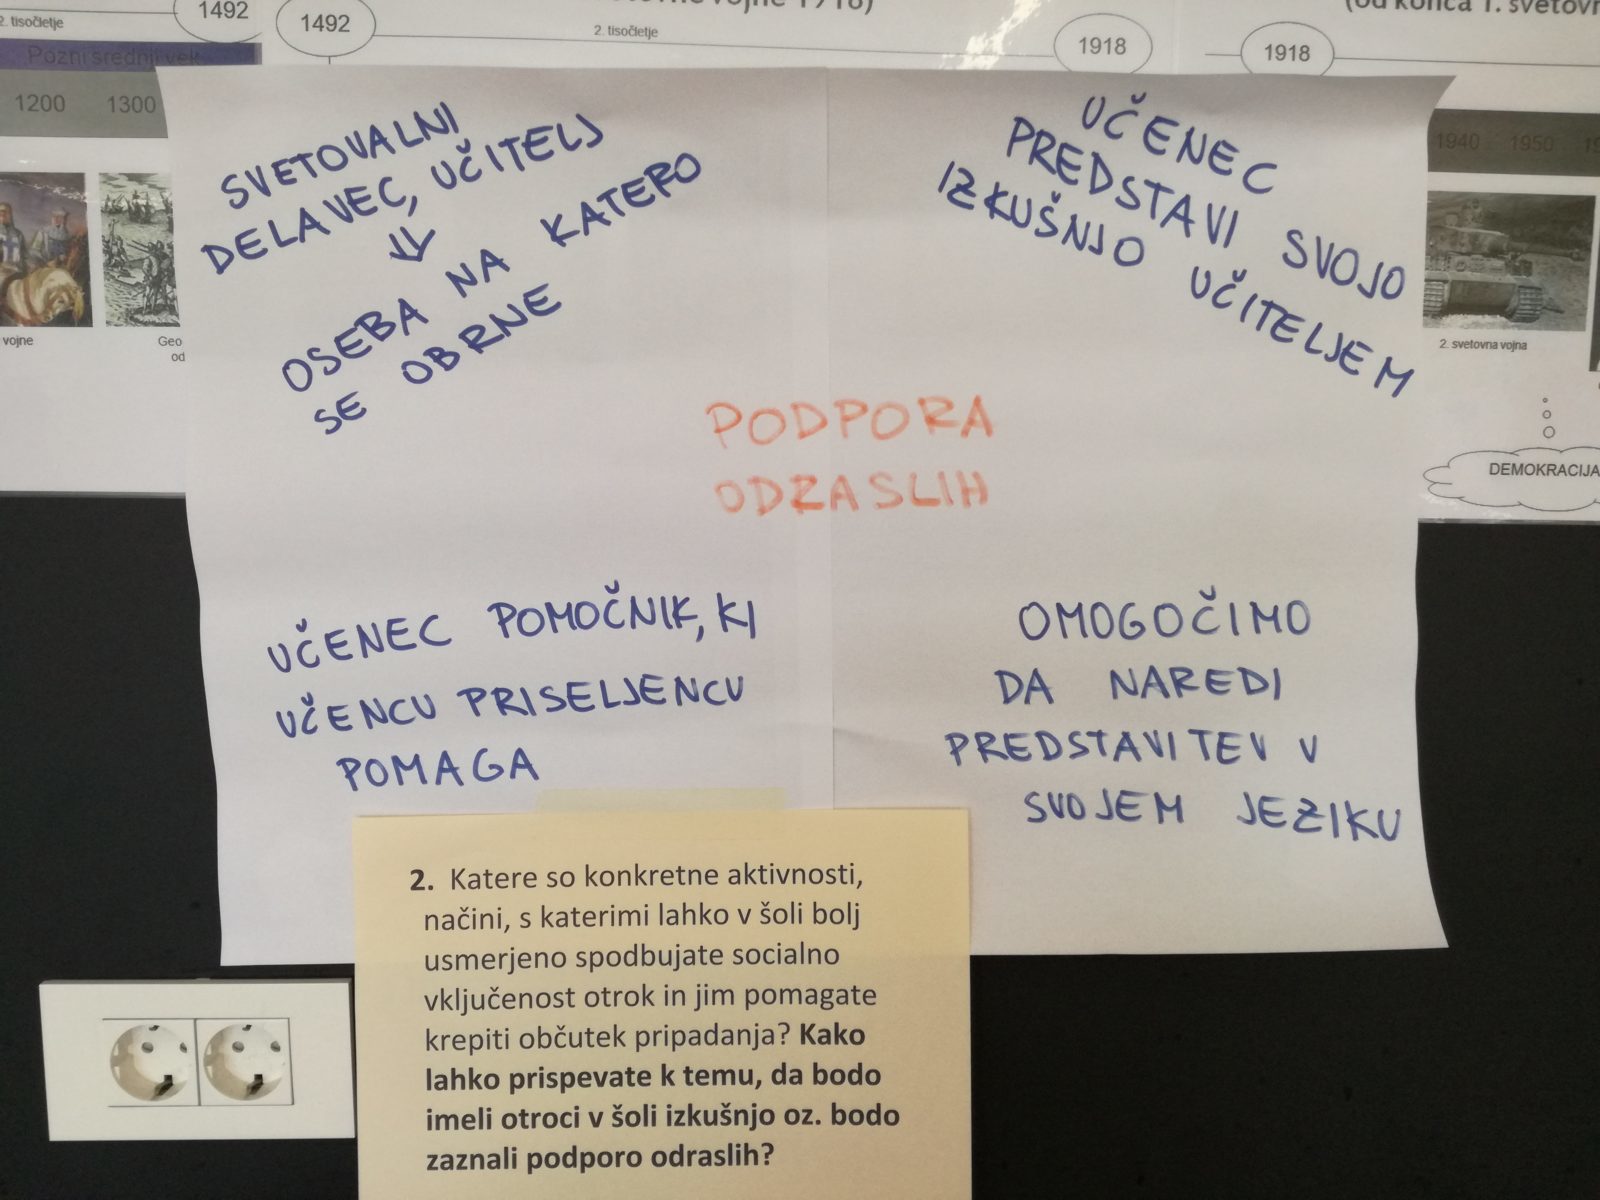 2. tisočletje
1492
1492
2. tisočletje
1918
1918
Pozni srednji vek
1200 1300
1940 1950
vojne
Geo
od
2. svetovna vojna
DEMOKRACIJA
SVETOVALNI
DELAVEC, UČITELJ
⇓
OSEBA NA KATERO
SE OBRNE
UČENEC
PREDSTAVI SVOJO
IZKUŠNJO UČITELJEM
PODPORA
ODRASLIH
UČENEC POMOČNIK, KI
UČENCU PRISELJENCU
POMAGA
OMOGOČIMO
DA NAREDI
PREDSTAVITEV V
SVOJEM JEZIKU
2. Katere so konkretne aktivnosti,
načini, s katerimi lahko v šoli bolj
usmerjeno spodbujate socialno
vključenost otrok in jim pomagate
krepiti občutek pripadanja? Kako
lahko prispevate k temu, da bodo
imeli otroci v šoli izkušnjo oz. bodo
zaznali podporo odraslih?